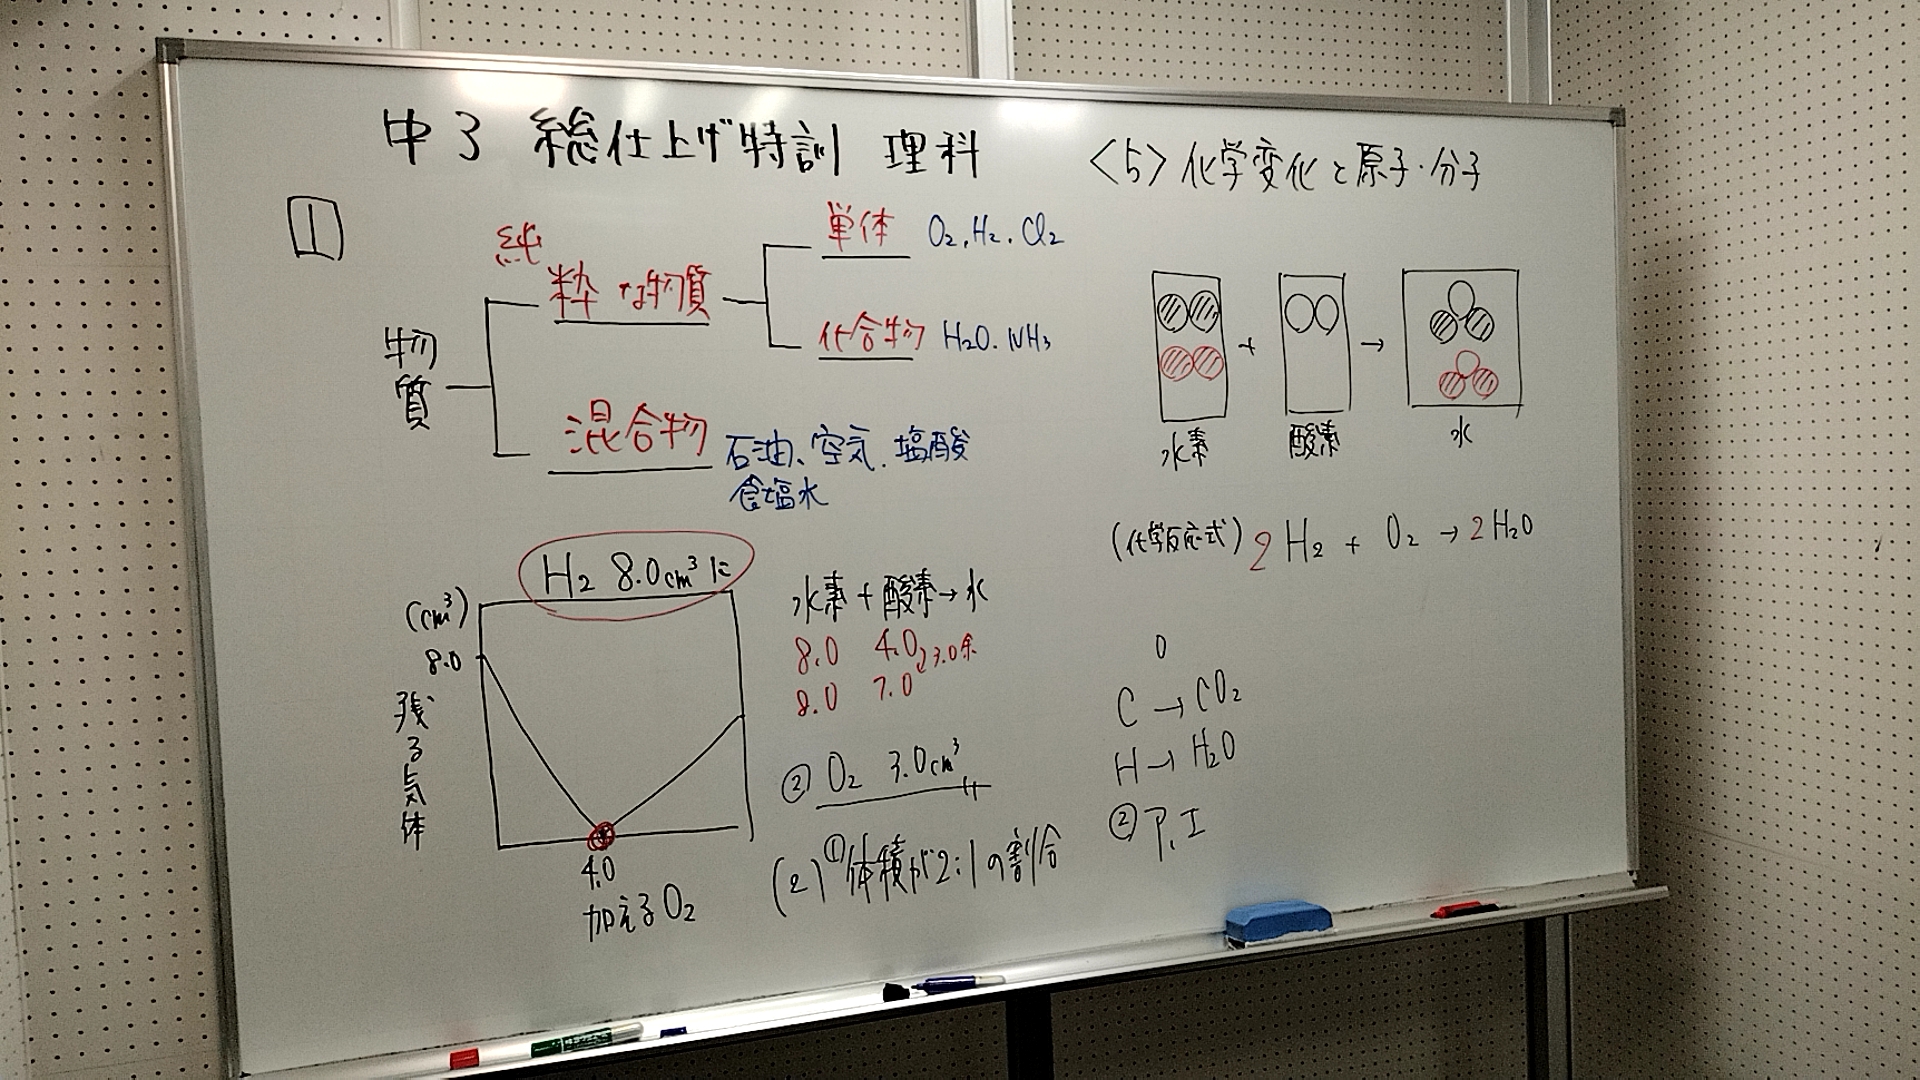 中3 総仕上げ特訓 理科
<5> 化学変化と原子・分子
1
物質
純粋な物質
単体 O2. H2. Cl2
化合物 H2O. NH3
混合物 石油、空気. 塩酸
食塩水
水素 + 酸素 → 水
(化学反応式) 2H2 + O2 → 2H2O
H2 8.0cm³に
(cm³)
8.0
残る気体
4.0
加えるO2
水素 + 酸素 → 水
8.0 4.0
3.0余
8.0 7.0
② O2 3.0cm³
(2) ① 体積が2:1の割合
O
C → CO2
H → H2O
② ア、エ